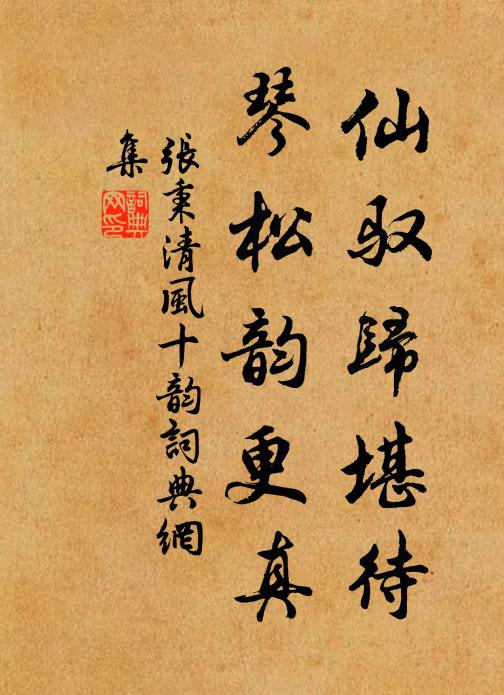 仙驭歸堪待
琴松韵更真
張秉清風十韵詞典網
集
詞典网印